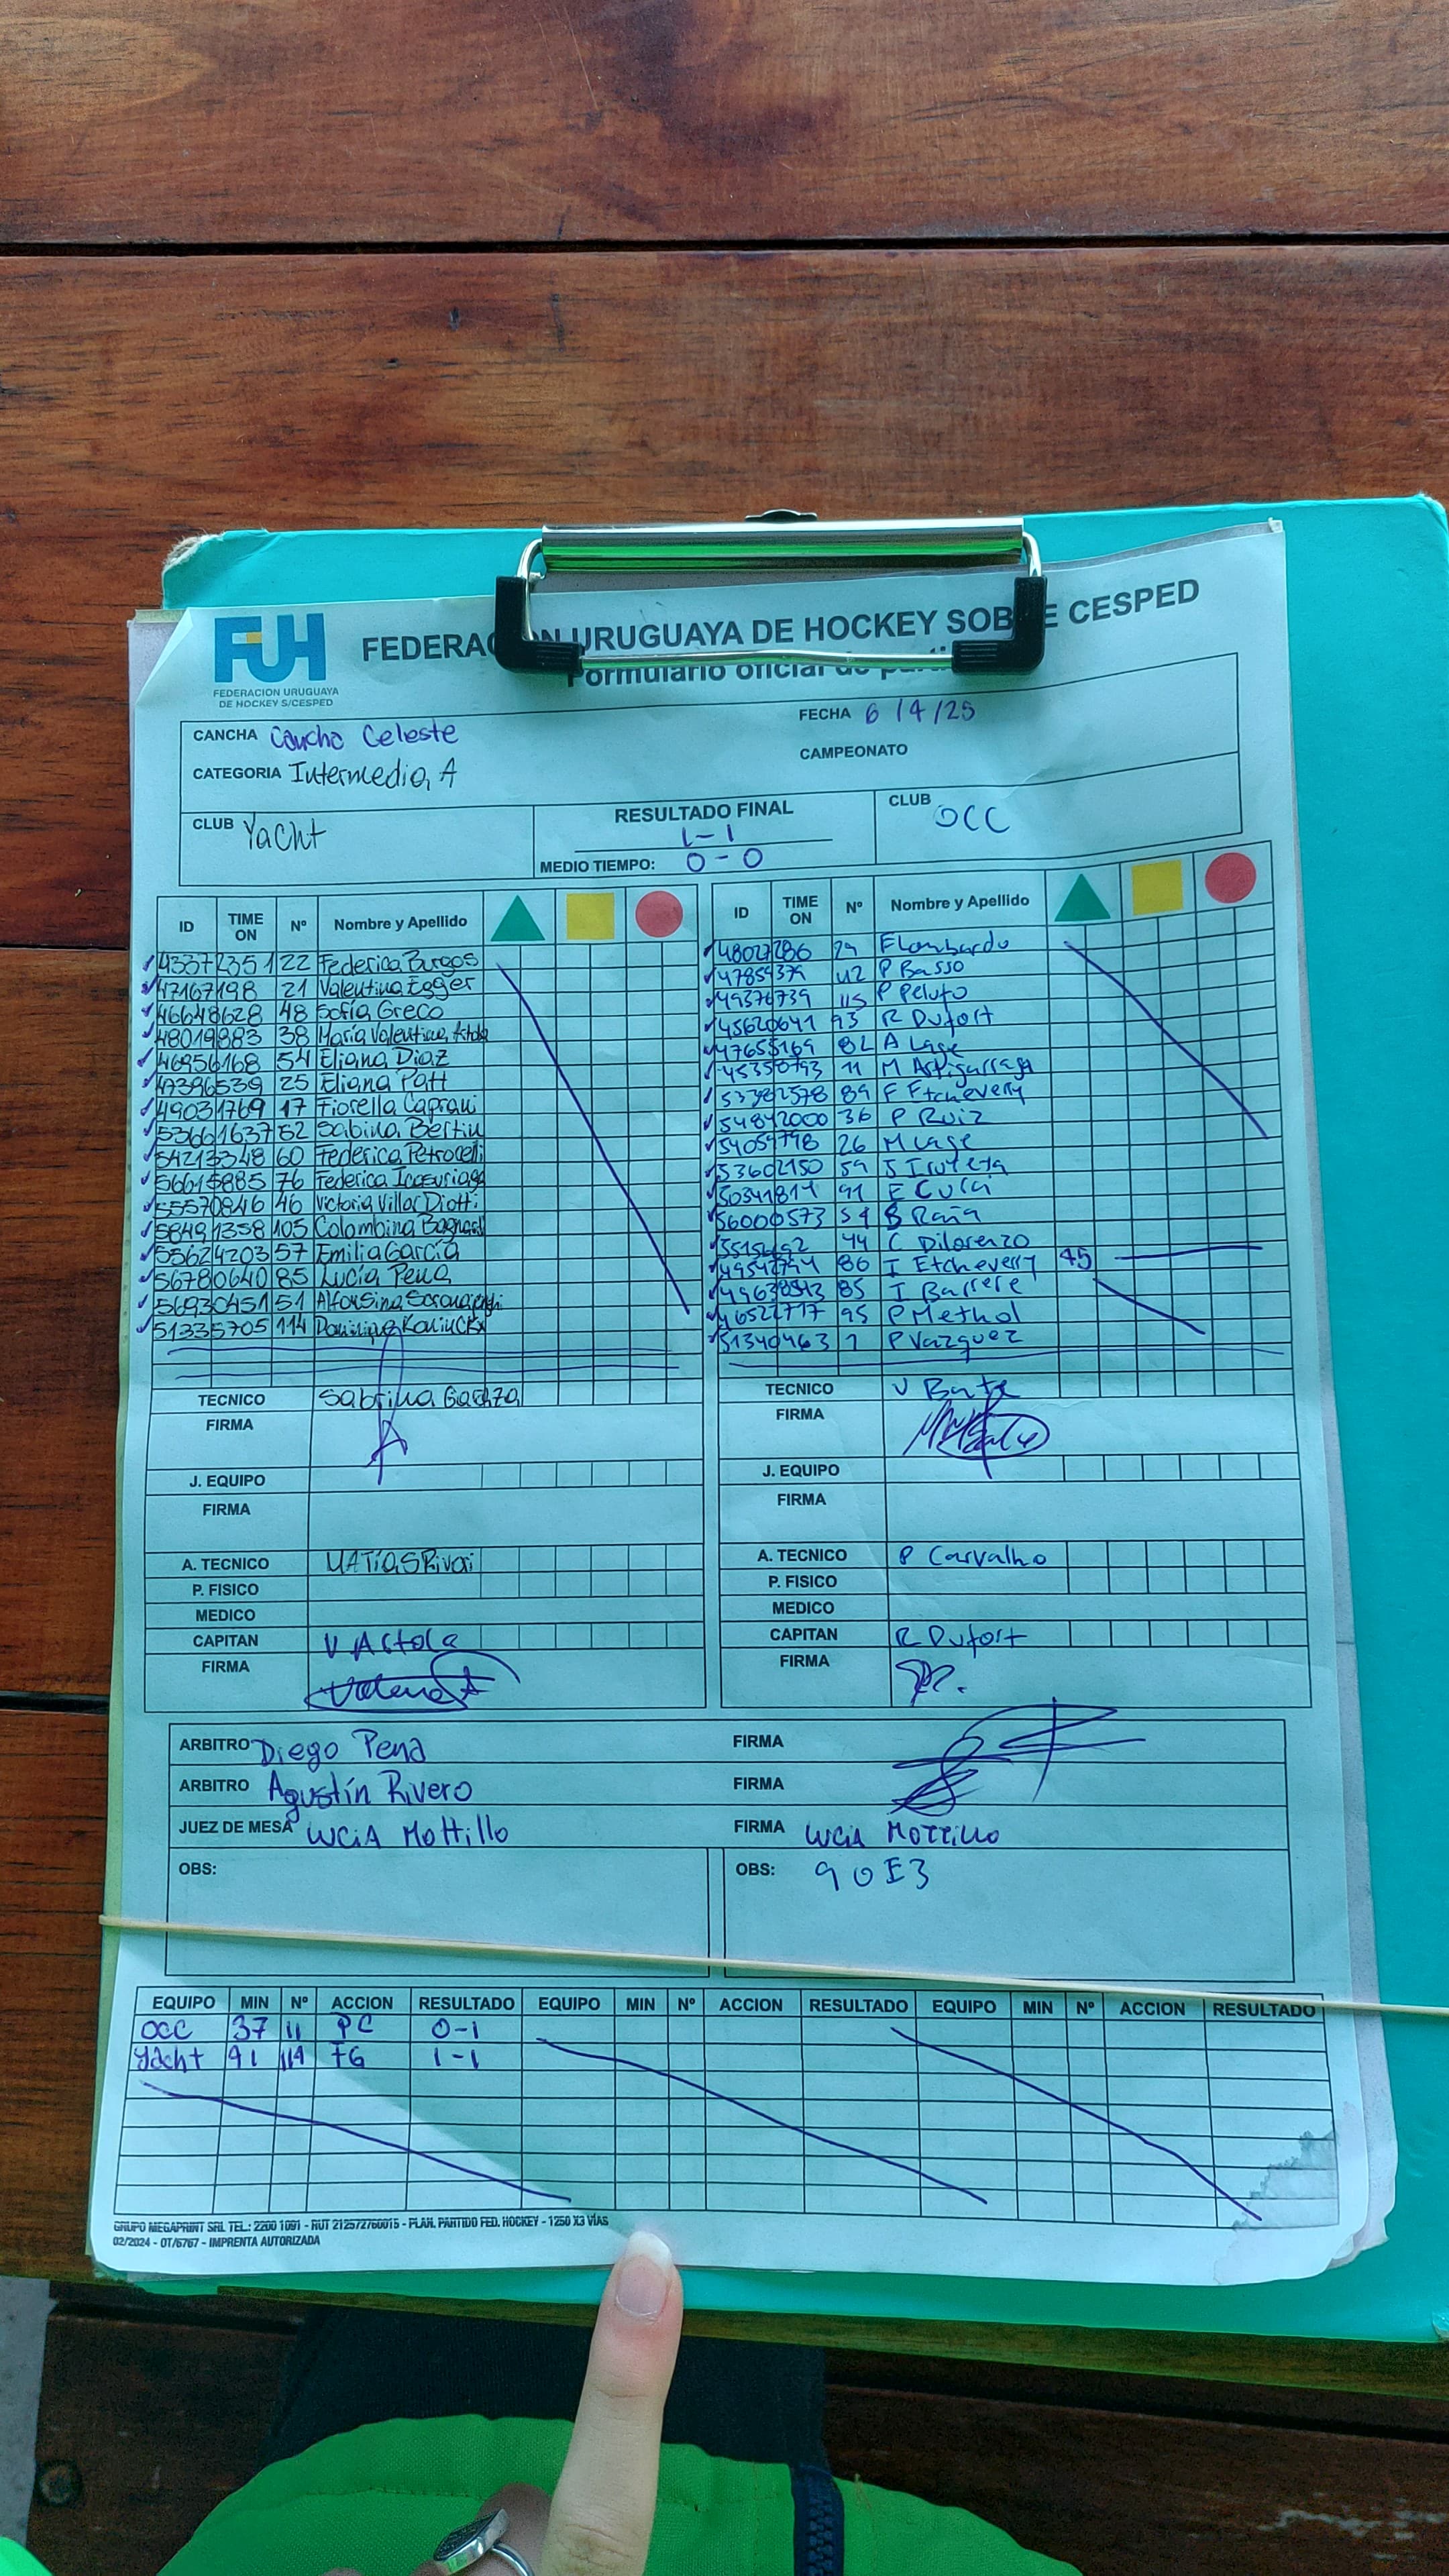 FUH
FEDERACION URUGUAYA
DE HOCKEY S/CESPED
FEDERACION URUGUAYA DE HOCKEY SOBRE CESPED
Formulario oficial de parti
CANCHA Cancha Celeste
FECHA 6/4/25
CATEGORIA Intermedia A
CAMPEONATO
CLUB Yacht
RESULTADO FINAL
1-1
MEDIO TIEMPO: 0-0
CLUB OCC
ID TIME ON Nº Nombre y Apellido
43372351 22 Federica Burgos
47167198 21 Valentina Egger
46648628 48 Sofía Greco
48019883 38 María Valentina Astola
46956168 54 Eliana Diaz
47396539 25 Eliana Patt
49031769 17 Fiorella Caprani
53661637 52 Sabina Bertin
54213348 60 Federica Petrocelli
56615885 76 Federica
55570846 46 Victoria Villar Diotti
58491358 105 Colombina
55624203 57 Emilia García
56780640 85 Lucía Pena
56930451 51 Alfonsina
51335705 114 Dominique
TECNICO Sabrina
FIRMA
J. EQUIPO
FIRMA
A. TECNICO MATÍAS Rivai
P. FISICO
MEDICO
CAPITAN V Astola
FIRMA
ID TIME ON Nº Nombre y Apellido
48027286 29 F Lombardo
47859379 42 P Basso
49376739 115 P Pelufo
45620641 93 R Dufort
47655169 82 A Lage
45350793 11 M Astigarraga
53382578 89 F Etcheverry
54842000 36 P Ruiz
54059798 26 M Lage
53602150 59 J Iruleta
50341814 91 E
56000573 54 B Raña
44 C Dilorenzo
49542794 86 I Etcheverry 45
49638513 85 I Barrere
46522717 95 P Methol
51340463 1 P Vazquez
TECNICO V
FIRMA
J. EQUIPO
FIRMA
A. TECNICO P Carvalho
P. FISICO
MEDICO
CAPITAN R Dufort
FIRMA
ARBITRO Diego Pena FIRMA
ARBITRO Agustín Rivero FIRMA
JUEZ DE MESA LUCIA Mottillo FIRMA LUCIA MOTTILLO
OBS:
OBS: 90E3
EQUIPO MIN Nº ACCION RESULTADO EQUIPO MIN Nº ACCION RESULTADO EQUIPO MIN Nº ACCION RESULTADO
OCC 37 11 PC 0-1
Yacht 41 114 FG 1-1
GRUPO MEGAPRINT SRL TEL.: 2200 1091 - RUT 212572760015 - PLAN. PARTIDO FED. HOCKEY - 1250 X3 VÍAS
02/2024 - OT/6767 - IMPRENTA AUTORIZADA